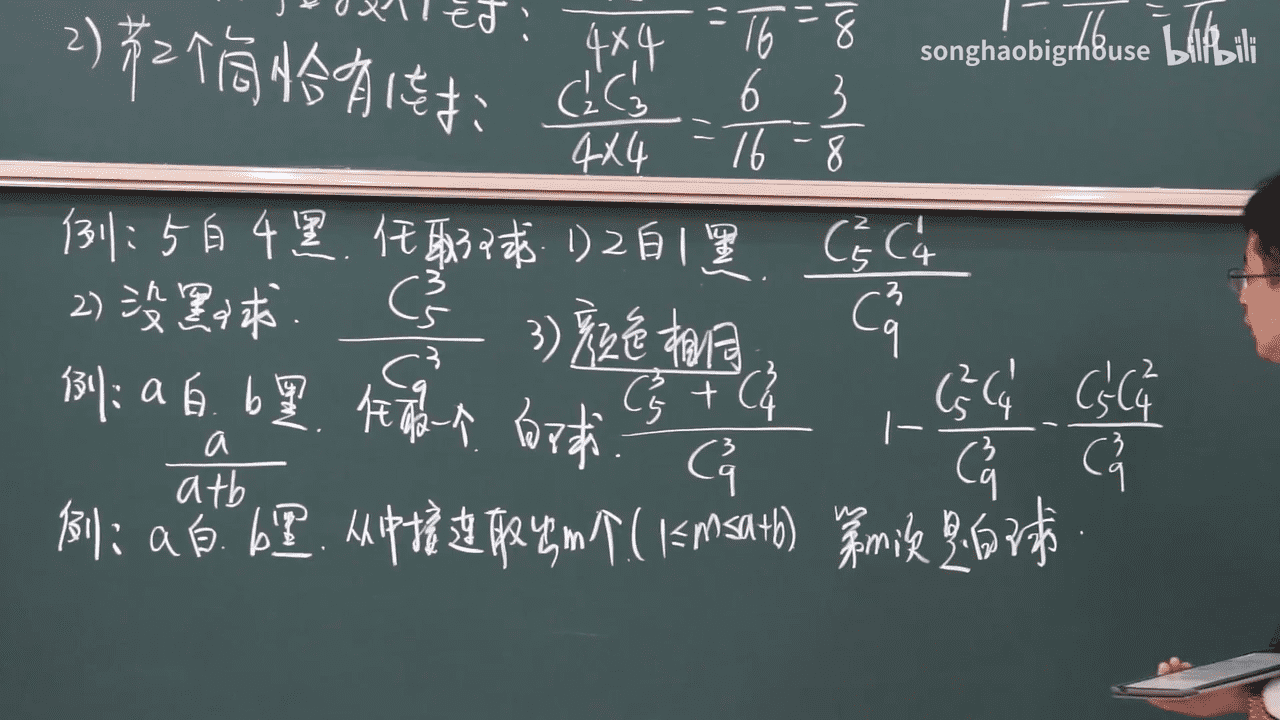 4×4 = 16 = 8
1- 16 =
songhaobigmouse bilibili
2) 第2个筒恰有1球: C₂¹C₃¹/4×4 = 6/16 = 3/8
例: 5白4黑. 任取3球. 1) 2白1黑. C₅²C₄¹/C₉³
2) 没黑球. C₅³/C₉³ 3) 颜色相同 C₅³+C₄³/C₉³ 1-C₅²C₄¹/C₉³-C₅¹C₄²/C₉³
例: a白. b黑. 任取一个. 白球.
a/a+b
例: a白. b黑. 从中接连取出m个(1≤m≤a+b) 第m次是白球.